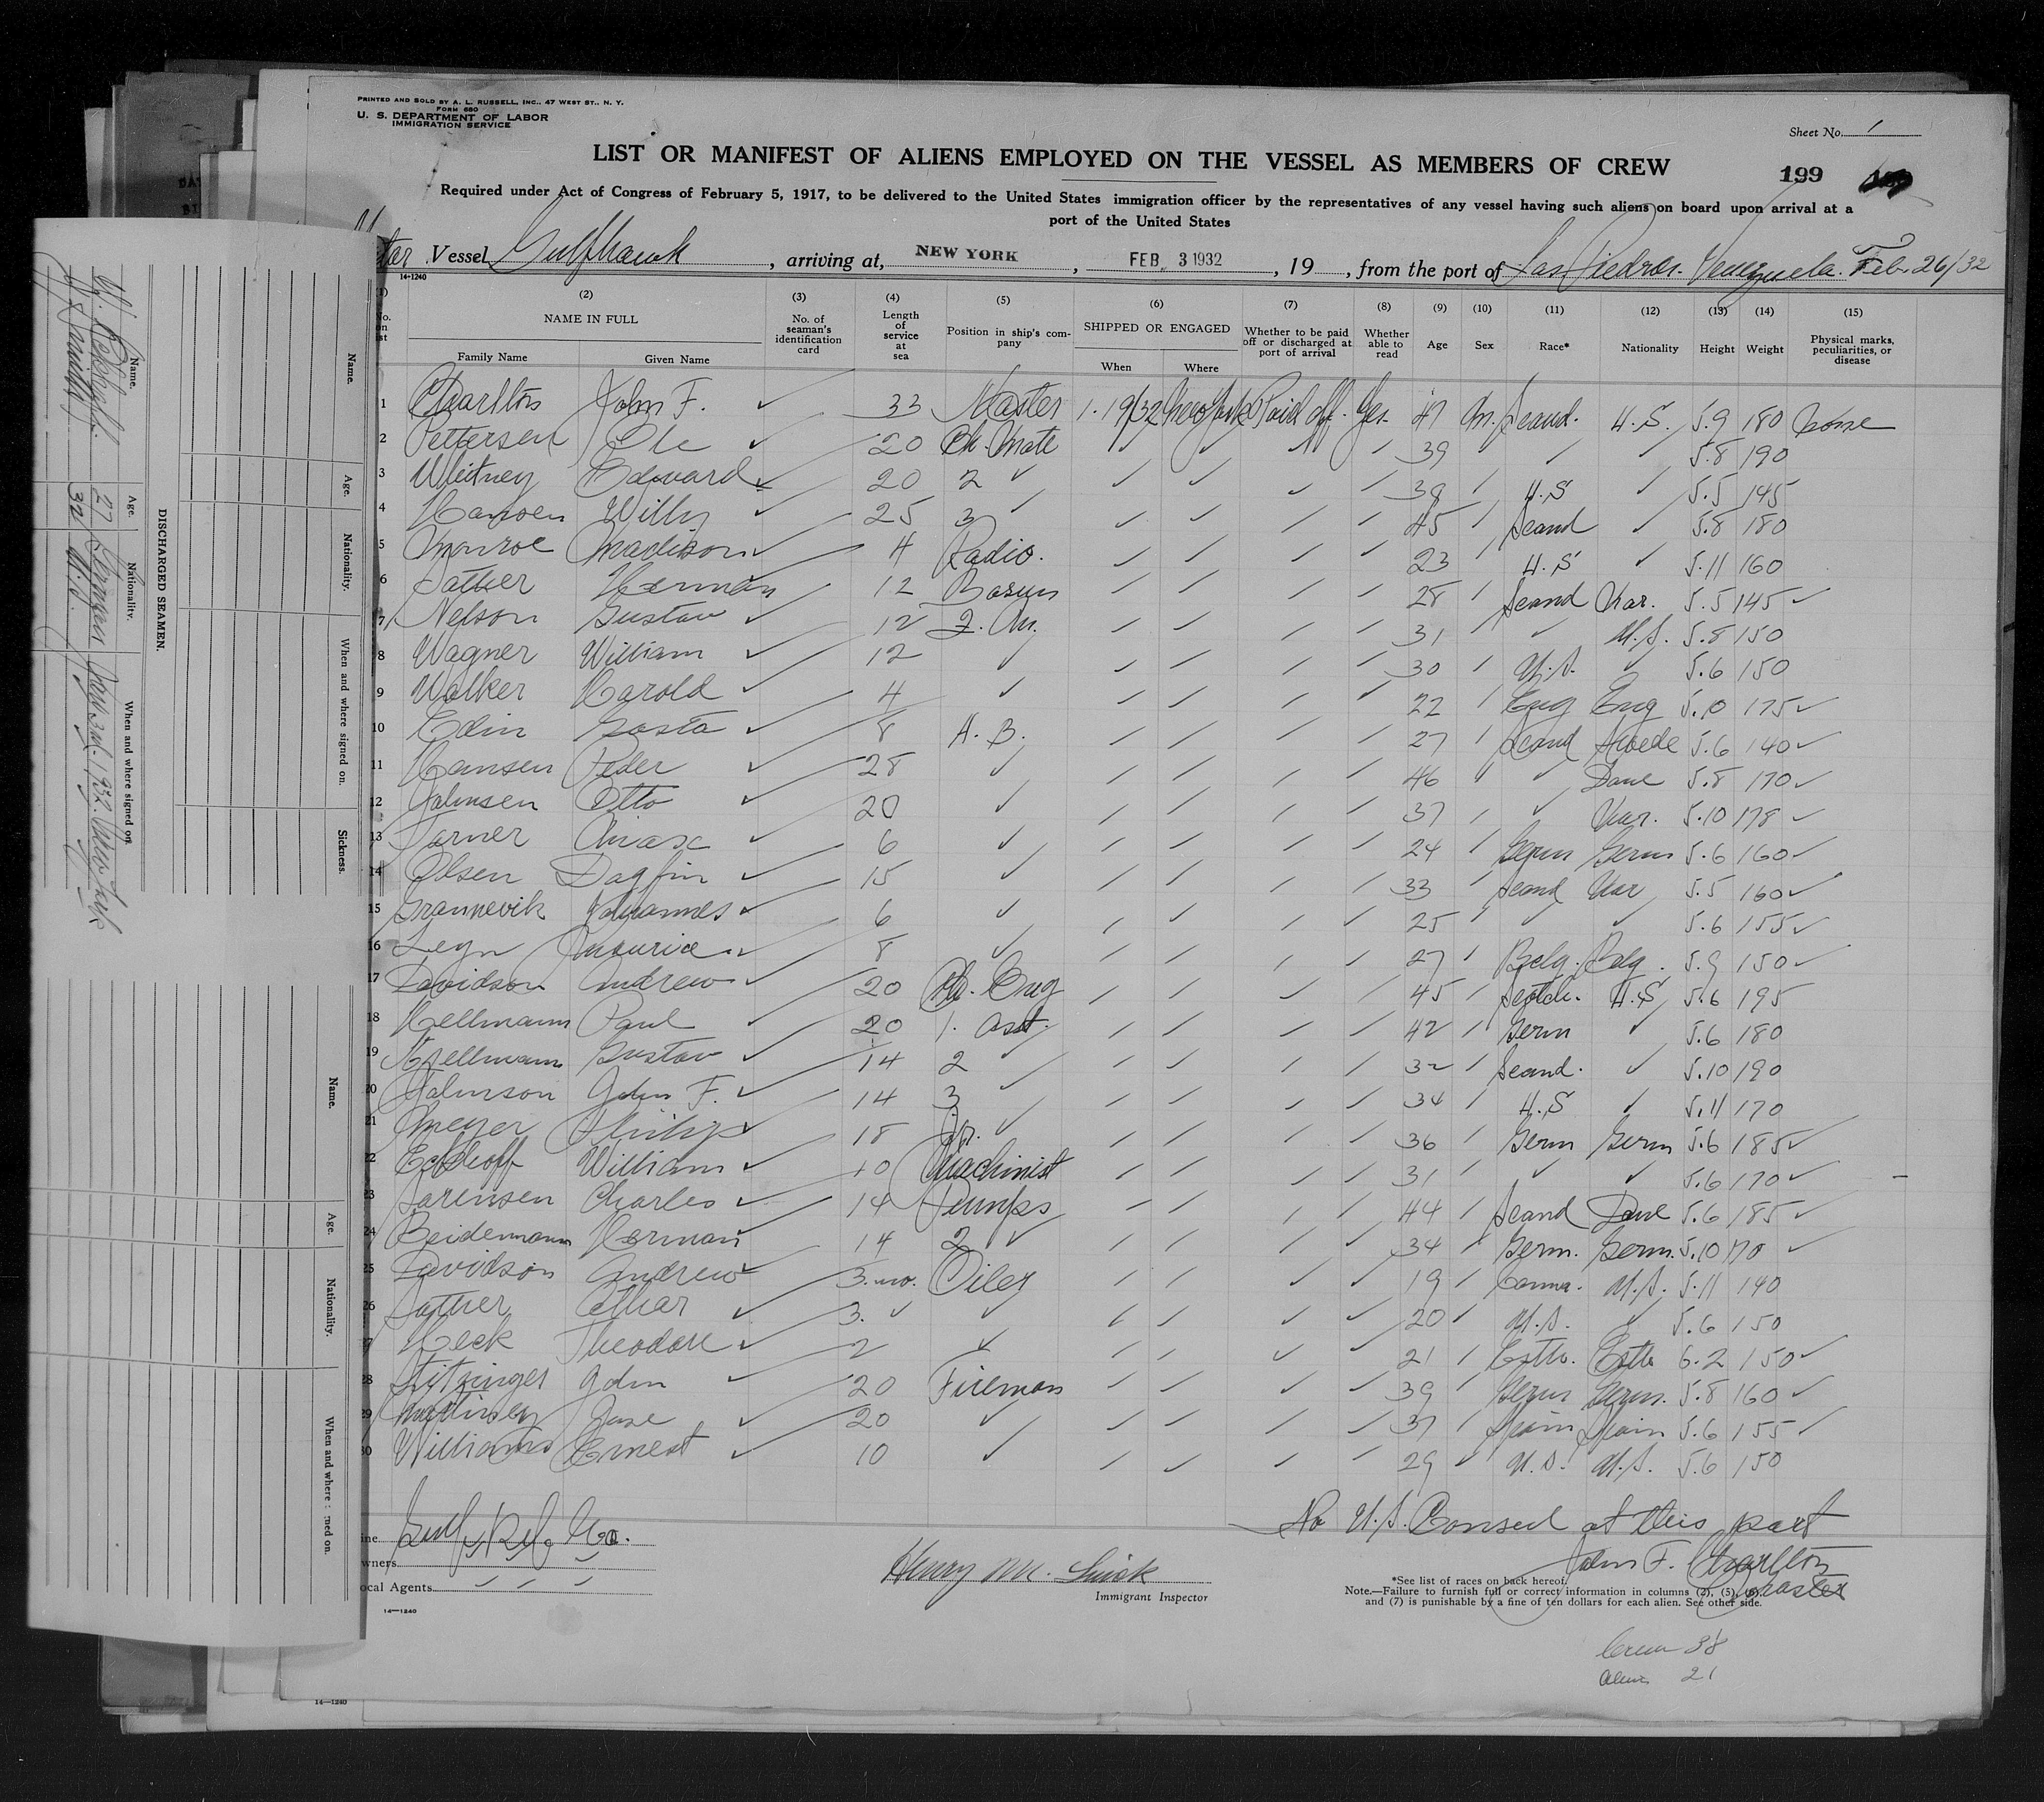 PRINTED AND SOLD BY A. L. RUSSELL, INC., 47 WEST ST., N. Y.
FORM 680
U. S. DEPARTMENT OF LABOR
IMMIGRATION SERVICE
Sheet No. 1
LIST OR MANIFEST OF ALIENS EMPLOYED ON THE VESSEL AS MEMBERS OF CREW
199
Required under Act of Congress of February 5, 1917, to be delivered to the United States immigration officer by the representatives of any vessel having such aliens on board upon arrival at a
port of the United States
Vessel Gulfhawk, arriving at, NEW YORK, FEB 3 1932, 19, from the port of Las Piedras. Venezuela. Feb. 26/32
14-1240
(1) (2) (3) (4) (5) (6) (7) (8) (9) (10) (11) (12) (13) (14) (15)
NAME IN FULL No. of seaman's identification card Length of service at sea Position in ship's company SHIPPED OR ENGAGED Whether to be paid off or discharged at port of arrival Whether able to read Age Sex Race* Nationality Height Weight Physical marks, peculiarities, or disease
Family Name Given Name When Where
1 Charlton John F. ✓ 33 Master 1.19/32 New York Paid off. Yes. 47 M. Scand. U.S. 5.9 180 None
2 Pettersen Ole ✓ 20 Ch. Mate ✓ ✓ ✓ ✓ 39 ✓ ✓ ✓ 5.8 190
3 Whitney Edward ✓ 20 2 ✓ ✓ ✓ ✓ ✓ 38 ✓ U.S ✓ 5.5 145
4 Hansen Willy ✓ 25 3 ✓ ✓ ✓ ✓ ✓ 45 ✓ Scand ✓ 5.8 180
5 Monroe Madison ✓ 4 Radio. ✓ ✓ ✓ ✓ 23 ✓ U.S ✓ 5.11 160
6 Sather Herman 12 Bosun ✓ ✓ ✓ ✓ 28 ✓ Scand Nor. 5.5 145 ✓
7 Nelson Gustav ✓ 12 ✓ ✓ ✓ ✓ 31 ✓ ✓ U.S. 5.8 150
8 Wagner William ✓ 12 ✓ ✓ ✓ ✓ ✓ 30 ✓ U.S. ✓ 5.6 150
9 Walker Harold ✓ 4 ✓ ✓ ✓ ✓ ✓ 22 ✓ Eng Eng 5.10 175 ✓
10 Edin Gosta ✓ 8 A.B. ✓ ✓ ✓ ✓ 27 ✓ Scand Swede 5.6 140 ✓
11 Hansen Peder ✓ 28 ✓ ✓ ✓ ✓ ✓ 46 ✓ ✓ Dane 5.8 170 ✓
12 Johnsen Otto ✓ 20 ✓ ✓ ✓ ✓ ✓ 37 ✓ ✓ Nor. 5.10 178 ✓
13 ✓ 6 ✓ ✓ ✓ ✓ ✓ 24 ✓ Germ Germ 5.6 160 ✓
14 Olsen Dagfin ✓ 15 ✓ ✓ ✓ ✓ ✓ 33 ✓ Scand Nor 5.5 160 ✓
15 Grannevik Johannes ✓ 6 ✓ ✓ ✓ ✓ ✓ 25 ✓ ✓ ✓ 5.6 155 ✓
16 Leyn Maurice ✓ 8 ✓ ✓ ✓ ✓ ✓ 27 ✓ Belg. Belg. 5.9 150 ✓
17 Davidson Andrew ✓ 20 Ch. Eng ✓ ✓ ✓ ✓ 45 ✓ Scotch. U.S 5.6 195
18 Hellmann Paul ✓ 20 1. Asst. ✓ ✓ ✓ ✓ 42 ✓ Germ ✓ 5.6 180
19 Kjellmann Gustav ✓ 14 2 ✓ ✓ ✓ ✓ ✓ 32 ✓ Scand. ✓ 5.10 190
20 Johnson John F. ✓ 14 3 ✓ ✓ ✓ ✓ ✓ 34 ✓ U.S ✓ 5.11 170
21 Meyer Philip ✓ 18 Jr. ✓ ✓ ✓ ✓ ✓ 36 ✓ Germ Germ 5.6 185 ✓
22 Eckhoff William ✓ 10 Machinist ✓ ✓ ✓ ✓ 31 ✓ ✓ ✓ 5.6 170 ✓
23 Sorensen Charles ✓ 14 Pumps ✓ ✓ ✓ ✓ 44 ✓ Scand Dane 5.6 185 ✓
24 Beidermann Herman 14 2 ✓ ✓ ✓ ✓ ✓ 34 ✓ Germ. Germ. 5.10 170 ✓
25 Davidson Andrew ✓ 3.mo. Oiler ✓ ✓ ✓ ✓ 19 ✓ U.S. 5.11 140
26 Sather ✓ 3. ✓ ✓ ✓ ✓ ✓ ✓ 20 ✓ U.S. ✓ 5.6 150
27 Heck Theodore ✓ 2 ✓ ✓ ✓ ✓ ✓ 21 ✓ Estho. Estho 6.2 150 ✓
28 Stitzinger John ✓ 20 Fireman ✓ ✓ ✓ ✓ 39 ✓ Germ Germ. 5.8 160 ✓
29 Jose ✓ 20 ✓ ✓ ✓ ✓ ✓ 37 ✓ Spain Spain 5.6 155 ✓
30 Williams Ernest ✓ 10 ✓ ✓ ✓ ✓ ✓ 29 ✓ U.S. U.S. 5.6 150
No U.S. Consul at this port
John F. Charlton
Master
ine Gulf Ref. Co.
wners ✓ ✓ ✓
ocal Agents ✓ ✓ ✓
14—1240
Henry
Immigrant Inspector
*See list of races on back hereof.
Note.—Failure to furnish full or correct information in columns (2), (5), (6), and (7) is punishable by a fine of ten dollars for each alien. See other side.
Crew 38
Aliens 21
14—1240
DISCHARGED SEAMEN.
Name. Age. Nationality. When and where signed on.
27 German Jan 3rd. 1932. New York
32 U.S.
Name. Age. Nationality. When and where signed on. Sickness.
Name. Age. Nationality. When and where signed on.